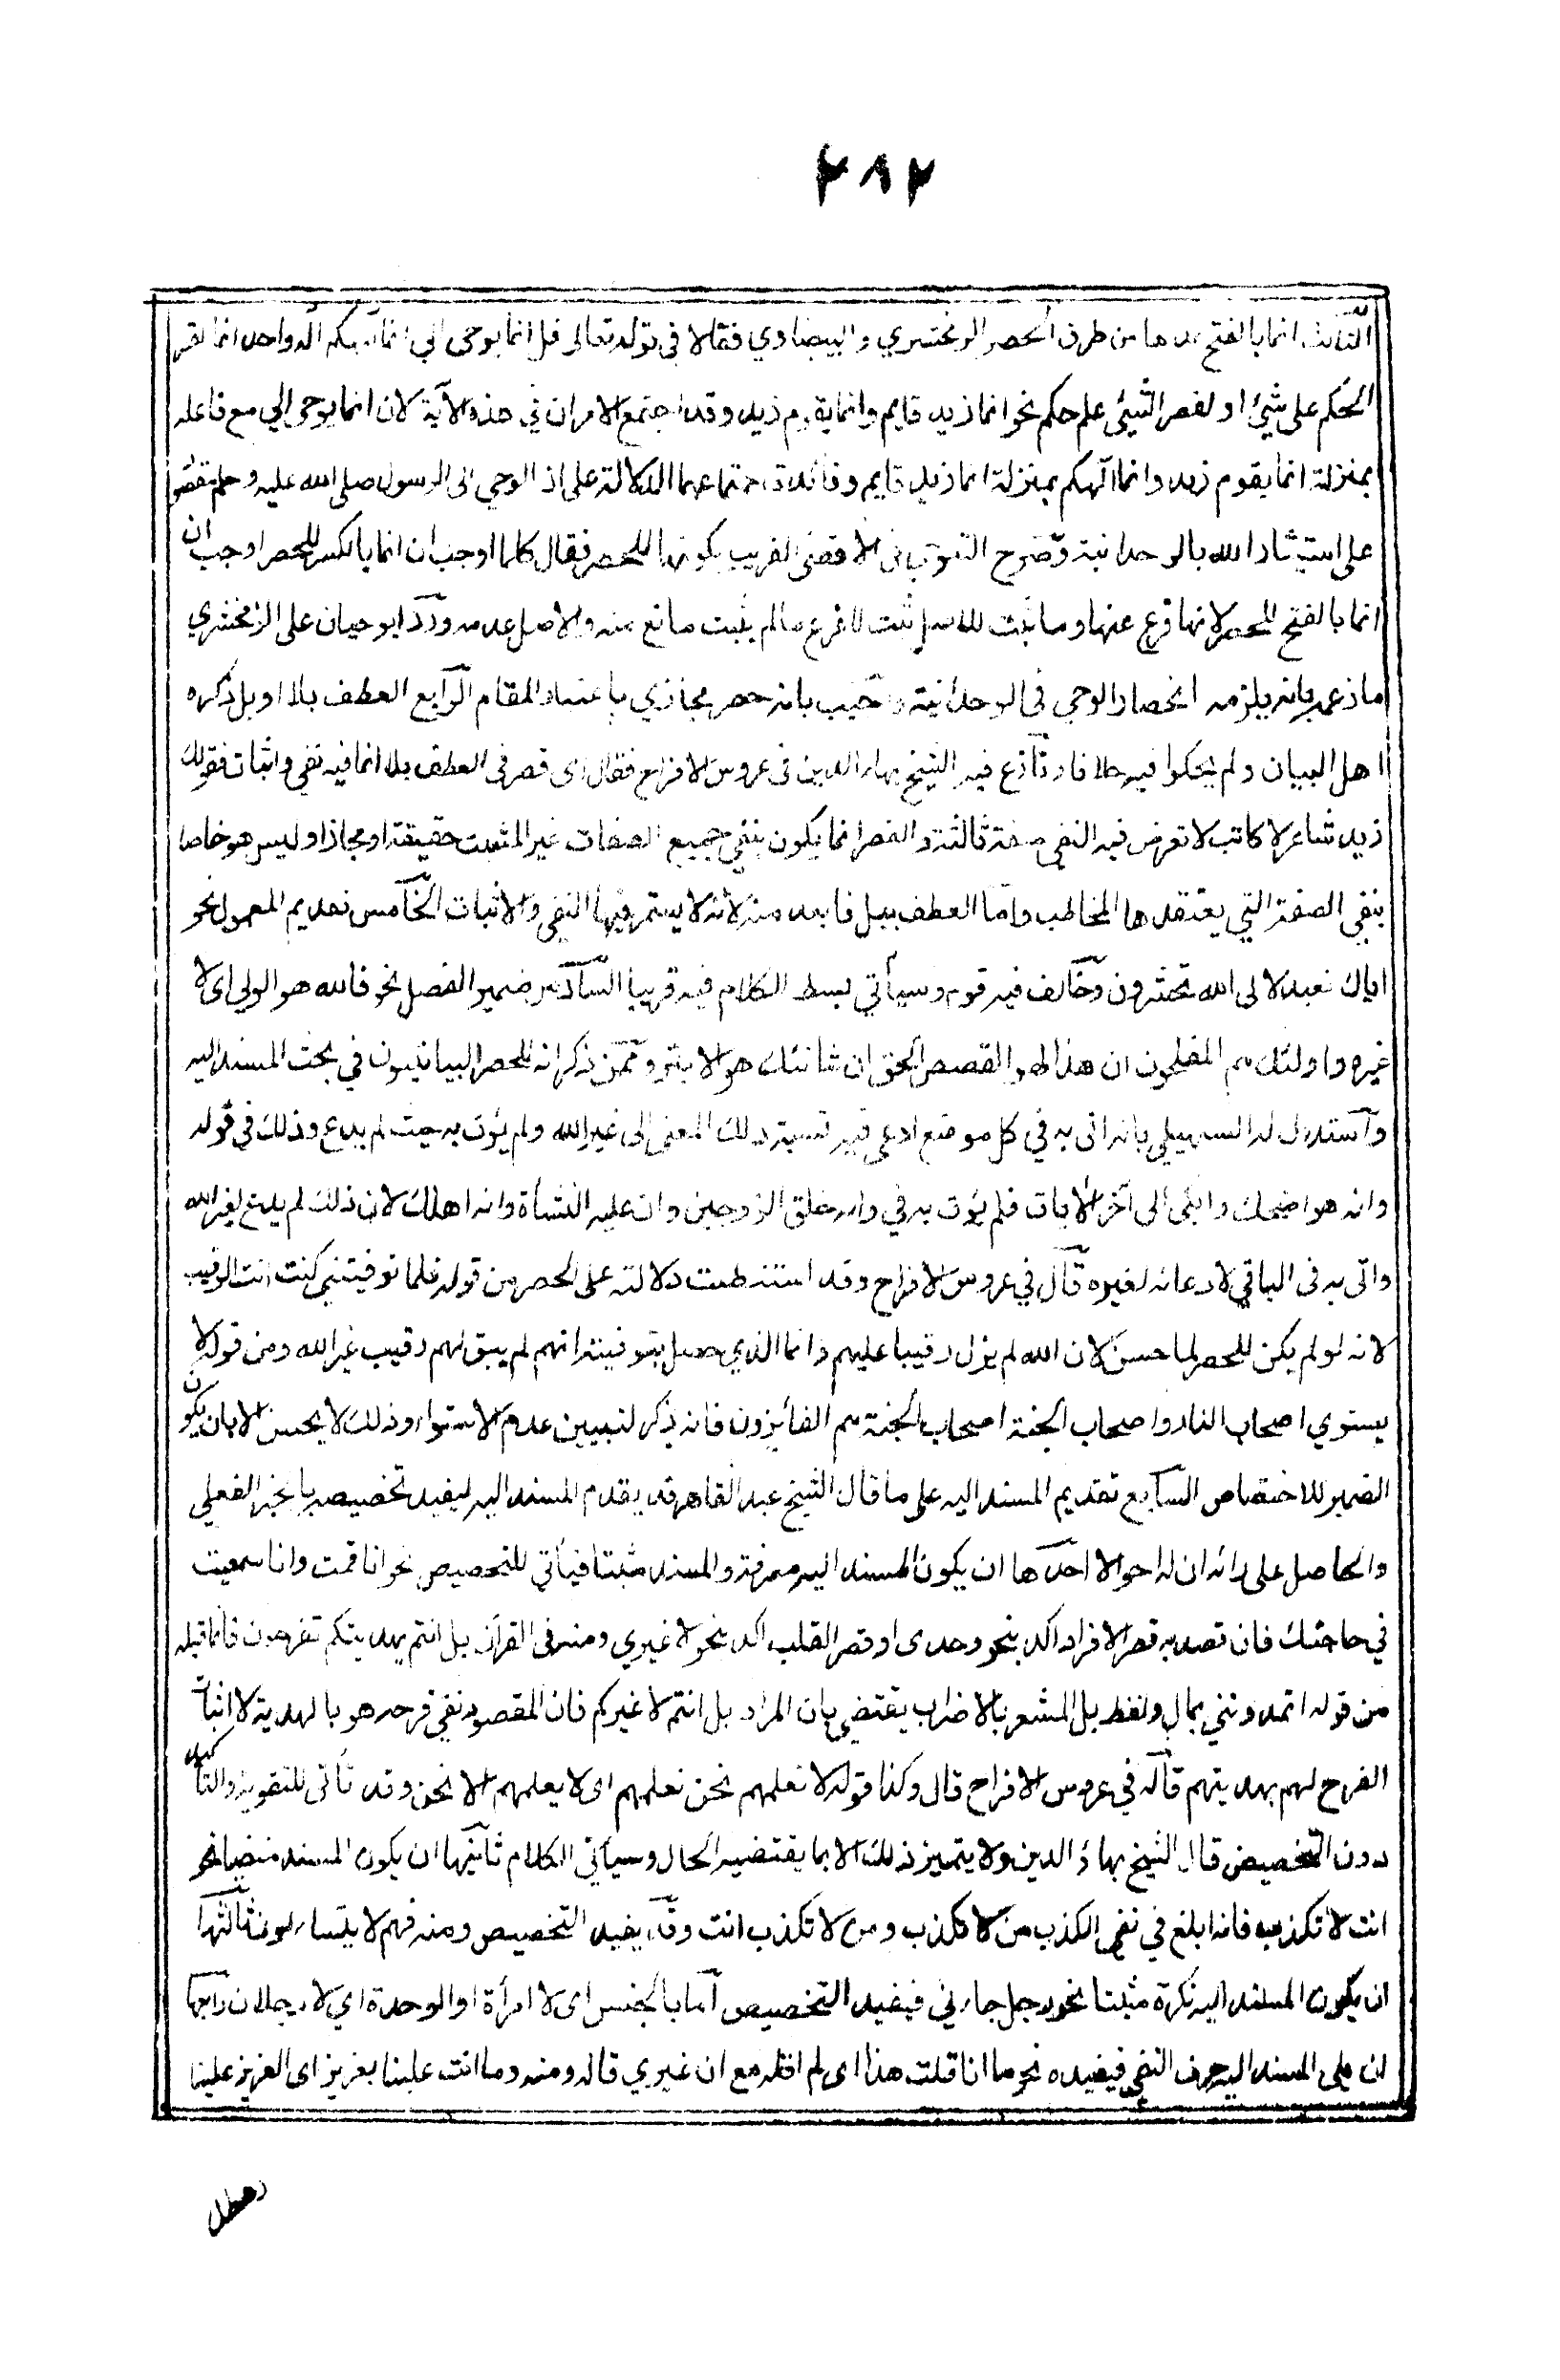 ٢٨٢
الثالث انما بالفتح عدها من طرق الحصر الزمخشري والبيضاوي فقالا في قوله تعالى قل انما يوحى الي انما الهكم اله واحد انما لقصر
الحكم على شيئ او لقصر الشيئ على حكم نحو انما زيد قايم وانما يقوم زيد وقد اجتمع الامران في هذه الآية لان انما يوحى الي مع فاعله
بمنزلة انما يقوم زيد وانما الهكم بمنزلة انما زيد قايم وفائدة اجتماعهما الدلالة على ان الوحي الى الرسول صلى الله عليه وسلم مقصور
على استيثار الله بالوحدانية وصرح التنوخي في الاقصى القريب بكونها للحصر فقال كلما اوجب ان انما بالكسر للحصر اوجب ان
انما بالفتح للحصر لانها فرع عنها وما ثبت للاصل ثبت للفرع مالم يثبت مانع منه والاصل عدمه ورد ابو حيان على الزمخشري
ما زعمه بانه يلزمه انحصار الوحي في الوحدانية واجيب بانه حصر مجازي باعتبار المقام الرابع العطف بلا او بل ذكره
اهل البيان ولم يحكوا فيه خلافا ونازع فيه الشيخ بهاء الدين في عروس الافراح فقال اى قصر فى العطف بلا انما فيه نفي واثبات فقولك
زيد شاعر لا كاتب لا تعرض فيه لنفي صفة ثالثة والقصر انما يكون بنفي جميع الصفات غير المثبت حقيقة او مجازا وليس هو خاصا
بنفي الصفة التي يعتقدها المخاطب واما العطف ببل فابعد منه لانه لا يستمر فيها النفي والاثبات الخامس تقديم المعمول نحو
اياك نعبد لالى الله تحشرون وخالف فيه قوم وسيأتي بسط الكلام فيه قريبا السادس ضمير الفصل نحو فالله هو الولي اى لا
غيره واولئك هم المفلحون ان هذا لهو القصص الحق ان شانئك هو الابتر وممن ذكر انه للحصر البيانيون في بحث المسند اليه
واستدل له السهيلي بانه اتى به في كل موضع ادعى فيه نسبة ذلك المعنى الى غير الله ولم يؤت به حيث لم يدع وذلك في قوله
وانه هو اضحك وابكى الى آخر الآيات فلم يؤت به في وانه خلق الزوجين وان عليه النشأة وانه اهلك لان ذلك لم يدع لغير الله
واتى به فى الباقي لادعائه لغيره قال في عروس الافراح وقد استنبطت دلالته على الحصر من قوله فلما توفيتني كنت انت الرقيب
لانه لو لم يكن للحصر لما حسن لان الله لم يزل رقيبا عليهم وانما الذي حصل بتوفيته انهم لم يبق لهم رقيب غير الله ومن قوله لا
يستوي اصحاب النار واصحاب الجنة اصحاب الجنة هم الفائزون فانه ذكر لتبيين عدم الاستواء وذلك لا يحسن الا بان يكون
الضمير للاختصاص السابع تقديم المسند اليه على ما قال الشيخ عبد القاهر قد يقدم المسند اليه ليفيد تخصيصه بالخبر الفعلي
والحاصل على رائه ان له احوالا احدها ان يكون المسند اليه معرفة والمسند مثبتا فيأتي للتخصيص نحو انا قمت وانا سعيت
في حاجتك فان قصد به قصر الافراد اكد بنحو وحدى او قصر القلب اكد بنحو لا غيري ومنه فى القرآن بل انتم بهديتكم تفرحون فانما قبله
من قوله اتمدونني بمال ولفظ بل المشعر بالاضراب يقتضي بان المراد بل انتم لا غيركم فان المقصود نفي فرحه هو بالهدية لا اثبات
الفرح لهم بهديتهم قاله في عروس الافراح قال وكذا قوله لا تعلمهم نحن نعلمهم اى لا يعلمهم الا نحن وقد تأتى للتقوية والتأكيد
دون التخصيص قال الشيخ بهاء الدين ولا يتميز ذلك الا بما يقتضيه الحال وسيأتي الكلام ثانيها ان يكون المسند منفيا نحو
انت لا تكذب فانه ابلغ في نفي الكذب من لا تكذب ومن لا تكذب انت وقد يفيد التخصيص ومنه فهم لا يتساءلون ثالثها
ان يكون المسند اليه نكرة مثبتا نحو رجل جاءني فيفيد التخصيص اما بالجنس اى لا امرأة او الوحدة اي لا رجلان رابعها
ان يلى المسند اليه حرف النفي فيفيده نحو ما انا قلت هذا اى لم اقله مع ان غيري قاله ومنه وما انت علينا بعزيز اى العزيز علينا
رهطك